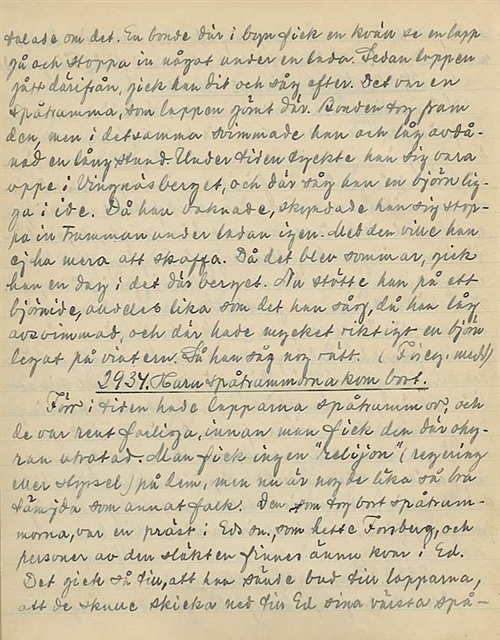 talade om det. En bonde där i byn fick en kväll se en lapp
gå och stoppa in något under en lada. Sedan lappen
gått därifrån, gick han dit och såg efter. Det var en
spåtrumma, som lappen gömt där. Bonden tog fram
den, men i detsamma svimmade han och låg avdå-
nad en lång stund. Under tiden tyckte han sig vara
oppe i Vingnäsberget, och där såg han en björn lig-
ga i ide. Då han vaknade, skyndade han sig stop-
pa in trumman under ladan igen. Med den ville han
ej ha mera att skaffa. Då det blev sommar, gick
han en dag i det där berget. Nu stötte han på ett
björnide, alldeles lika som det han såg, då han låg
avsvimmad, och där hade mycket riktigt en björn
legat på vintern. Så han såg nog rätt. (Föreg. medd.)
2934. Huru spåtrummorna kom bort.
Förr i tiden hade lapparna spåtrummor, och
de var rent farliga, innan man fick den där ohy-
ran utrotad. Man fick ingen "relijon" (regering
eller styrsel) på dem, men nu är nog de lika så bra
som annat folk. Den, som tog bort spåtrum-
morna, var en präst i Eds sn., som hette Forsberg, och
personer av den släkten finnes ännu kvar i Ed.
Det gick så till, att han sände bud till lapparna,
att de skulle skicka ned till Ed sina värsta spå-